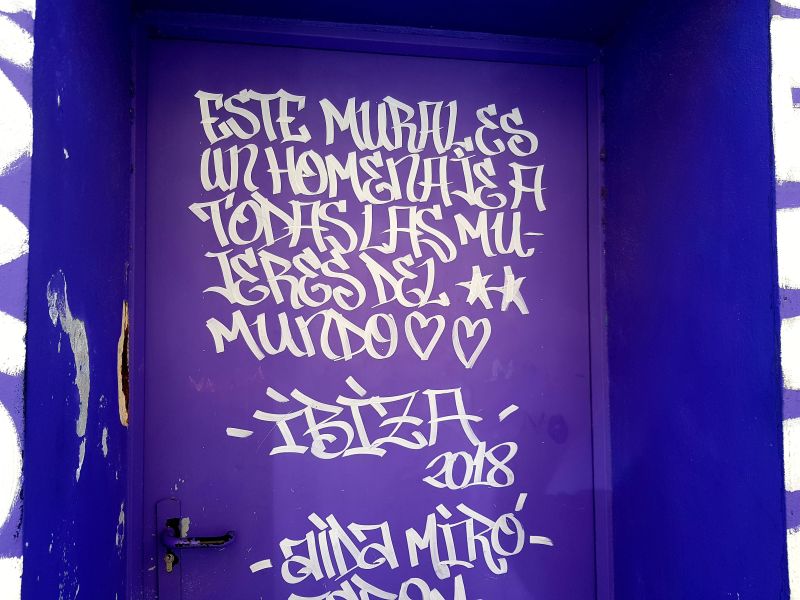 ESTE MURAL ES
UN HOMENAJE A
TODAS LAS MU-
JERES DEL
MUNDO
-IBIZA-
2018
-AIDA MIRÓ-